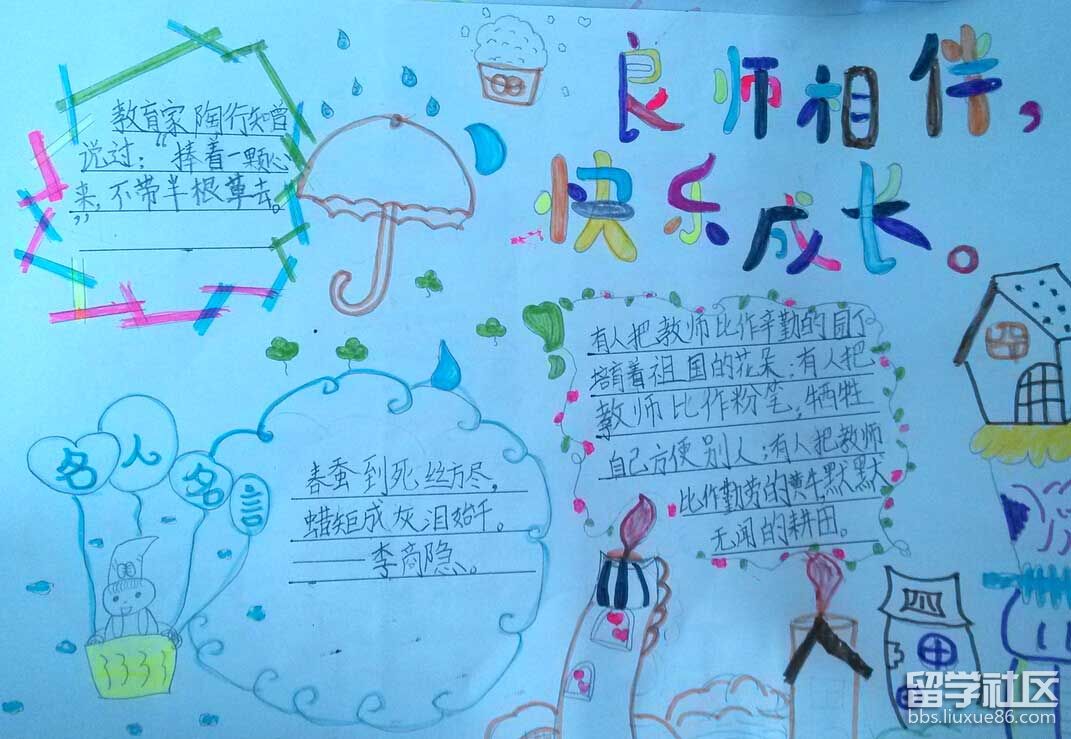 良师相伴，
快乐成长。
教育家陶行知曾
说过：“捧着一颗心
来，不带半根草去。
”
名人名言
春蚕到死丝方尽，
蜡炬成灰泪始干。
——李商隐。
有人把教师比作辛勤的园丁
培育着祖国的花朵；有人把
教师比作粉笔，牺牲
自己方便别人；有人把教师
比作勤劳的黄牛默默
无闻的耕田。
留学社区
bbs.liuxue86.com